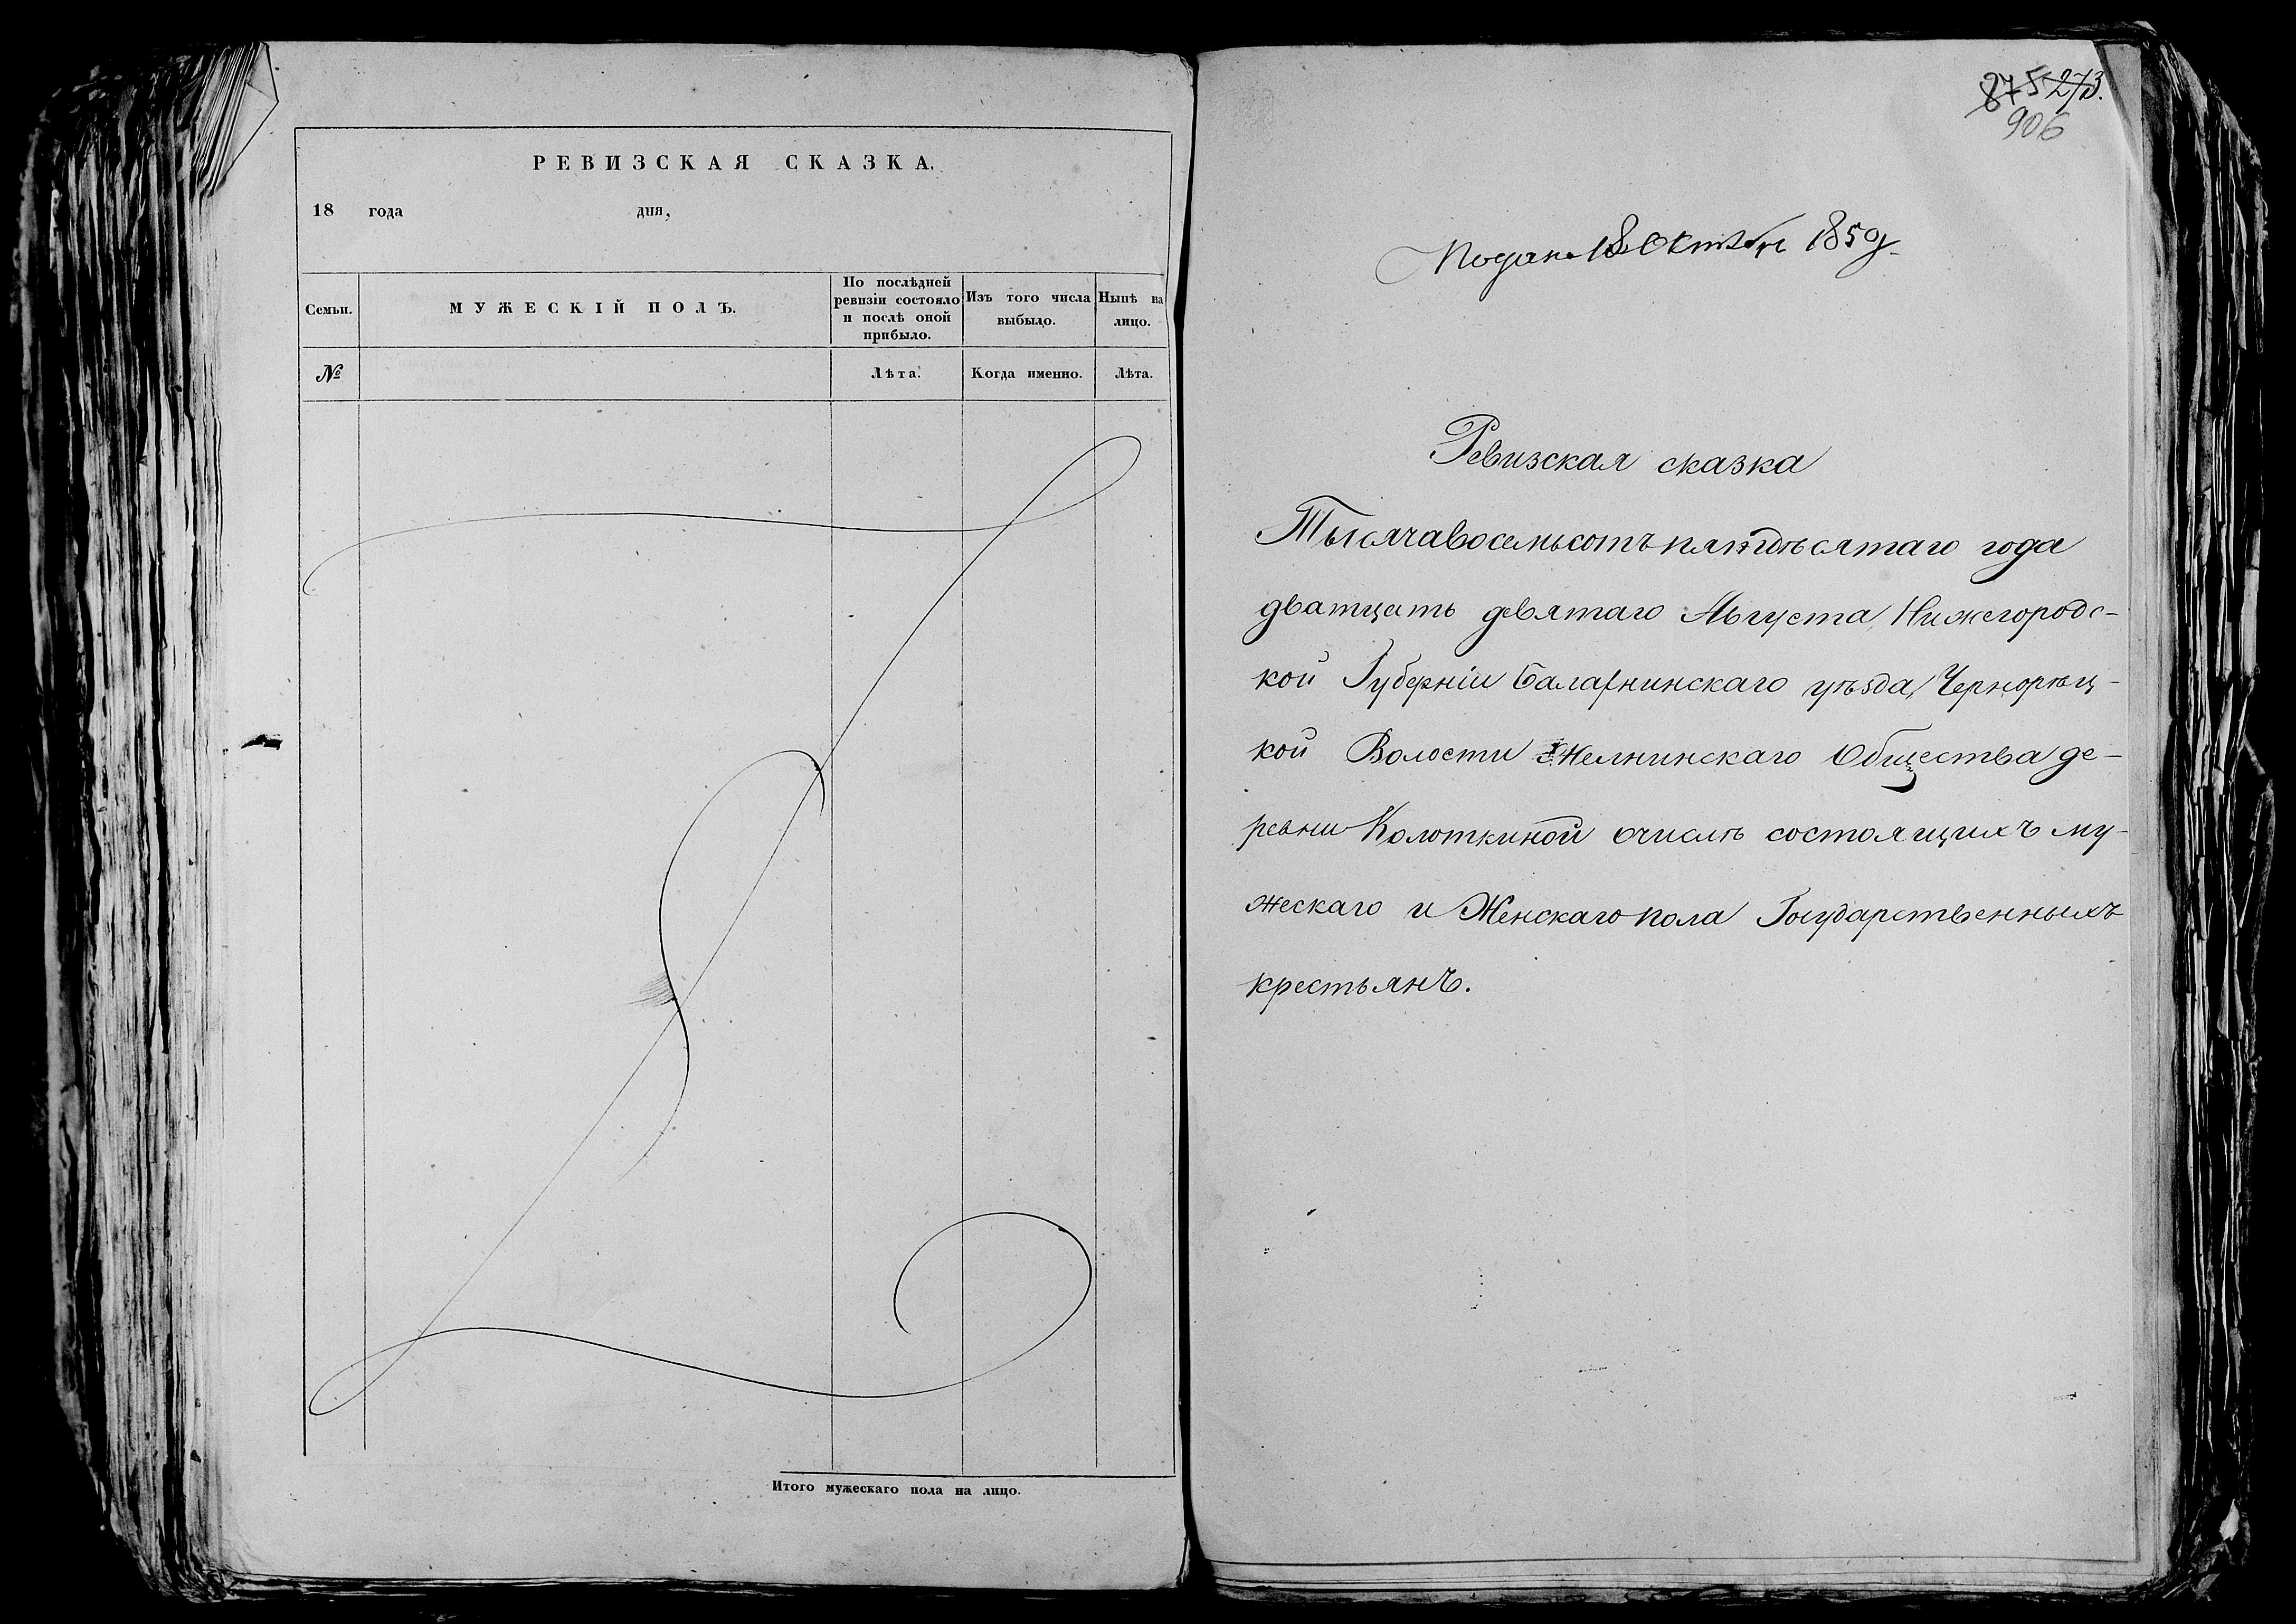 РЕВИЗСКАЯ СКАЗКА.
18 года дня,
Семьи.
МУЖЕСКІЙ ПОЛЪ.
По послѣдней
ревизіи состояло
и послѣ оной
прибыло.
Изъ того числа
выбыло.
Нынѣ на
лицо.
№
Лѣта.
Когда именно.
Лѣта.
Итого мужескаго пола на лицо.
875 273.
906
Подана 18 Октября 1850
Ревизская сказка
Тысячавосемьсотъ пятдѣсятаго года
дватцать девятаго Августа Нижегородс-
кой Губерніи Балахнинскаго уѣзда, Чернорѣц-
кой Волости Желнинскаго Общества де-
ревни Колоткиной очислѣ состоящихъ му-
жескаго и Женскаго пола Государственныхъ
крестьянъ.